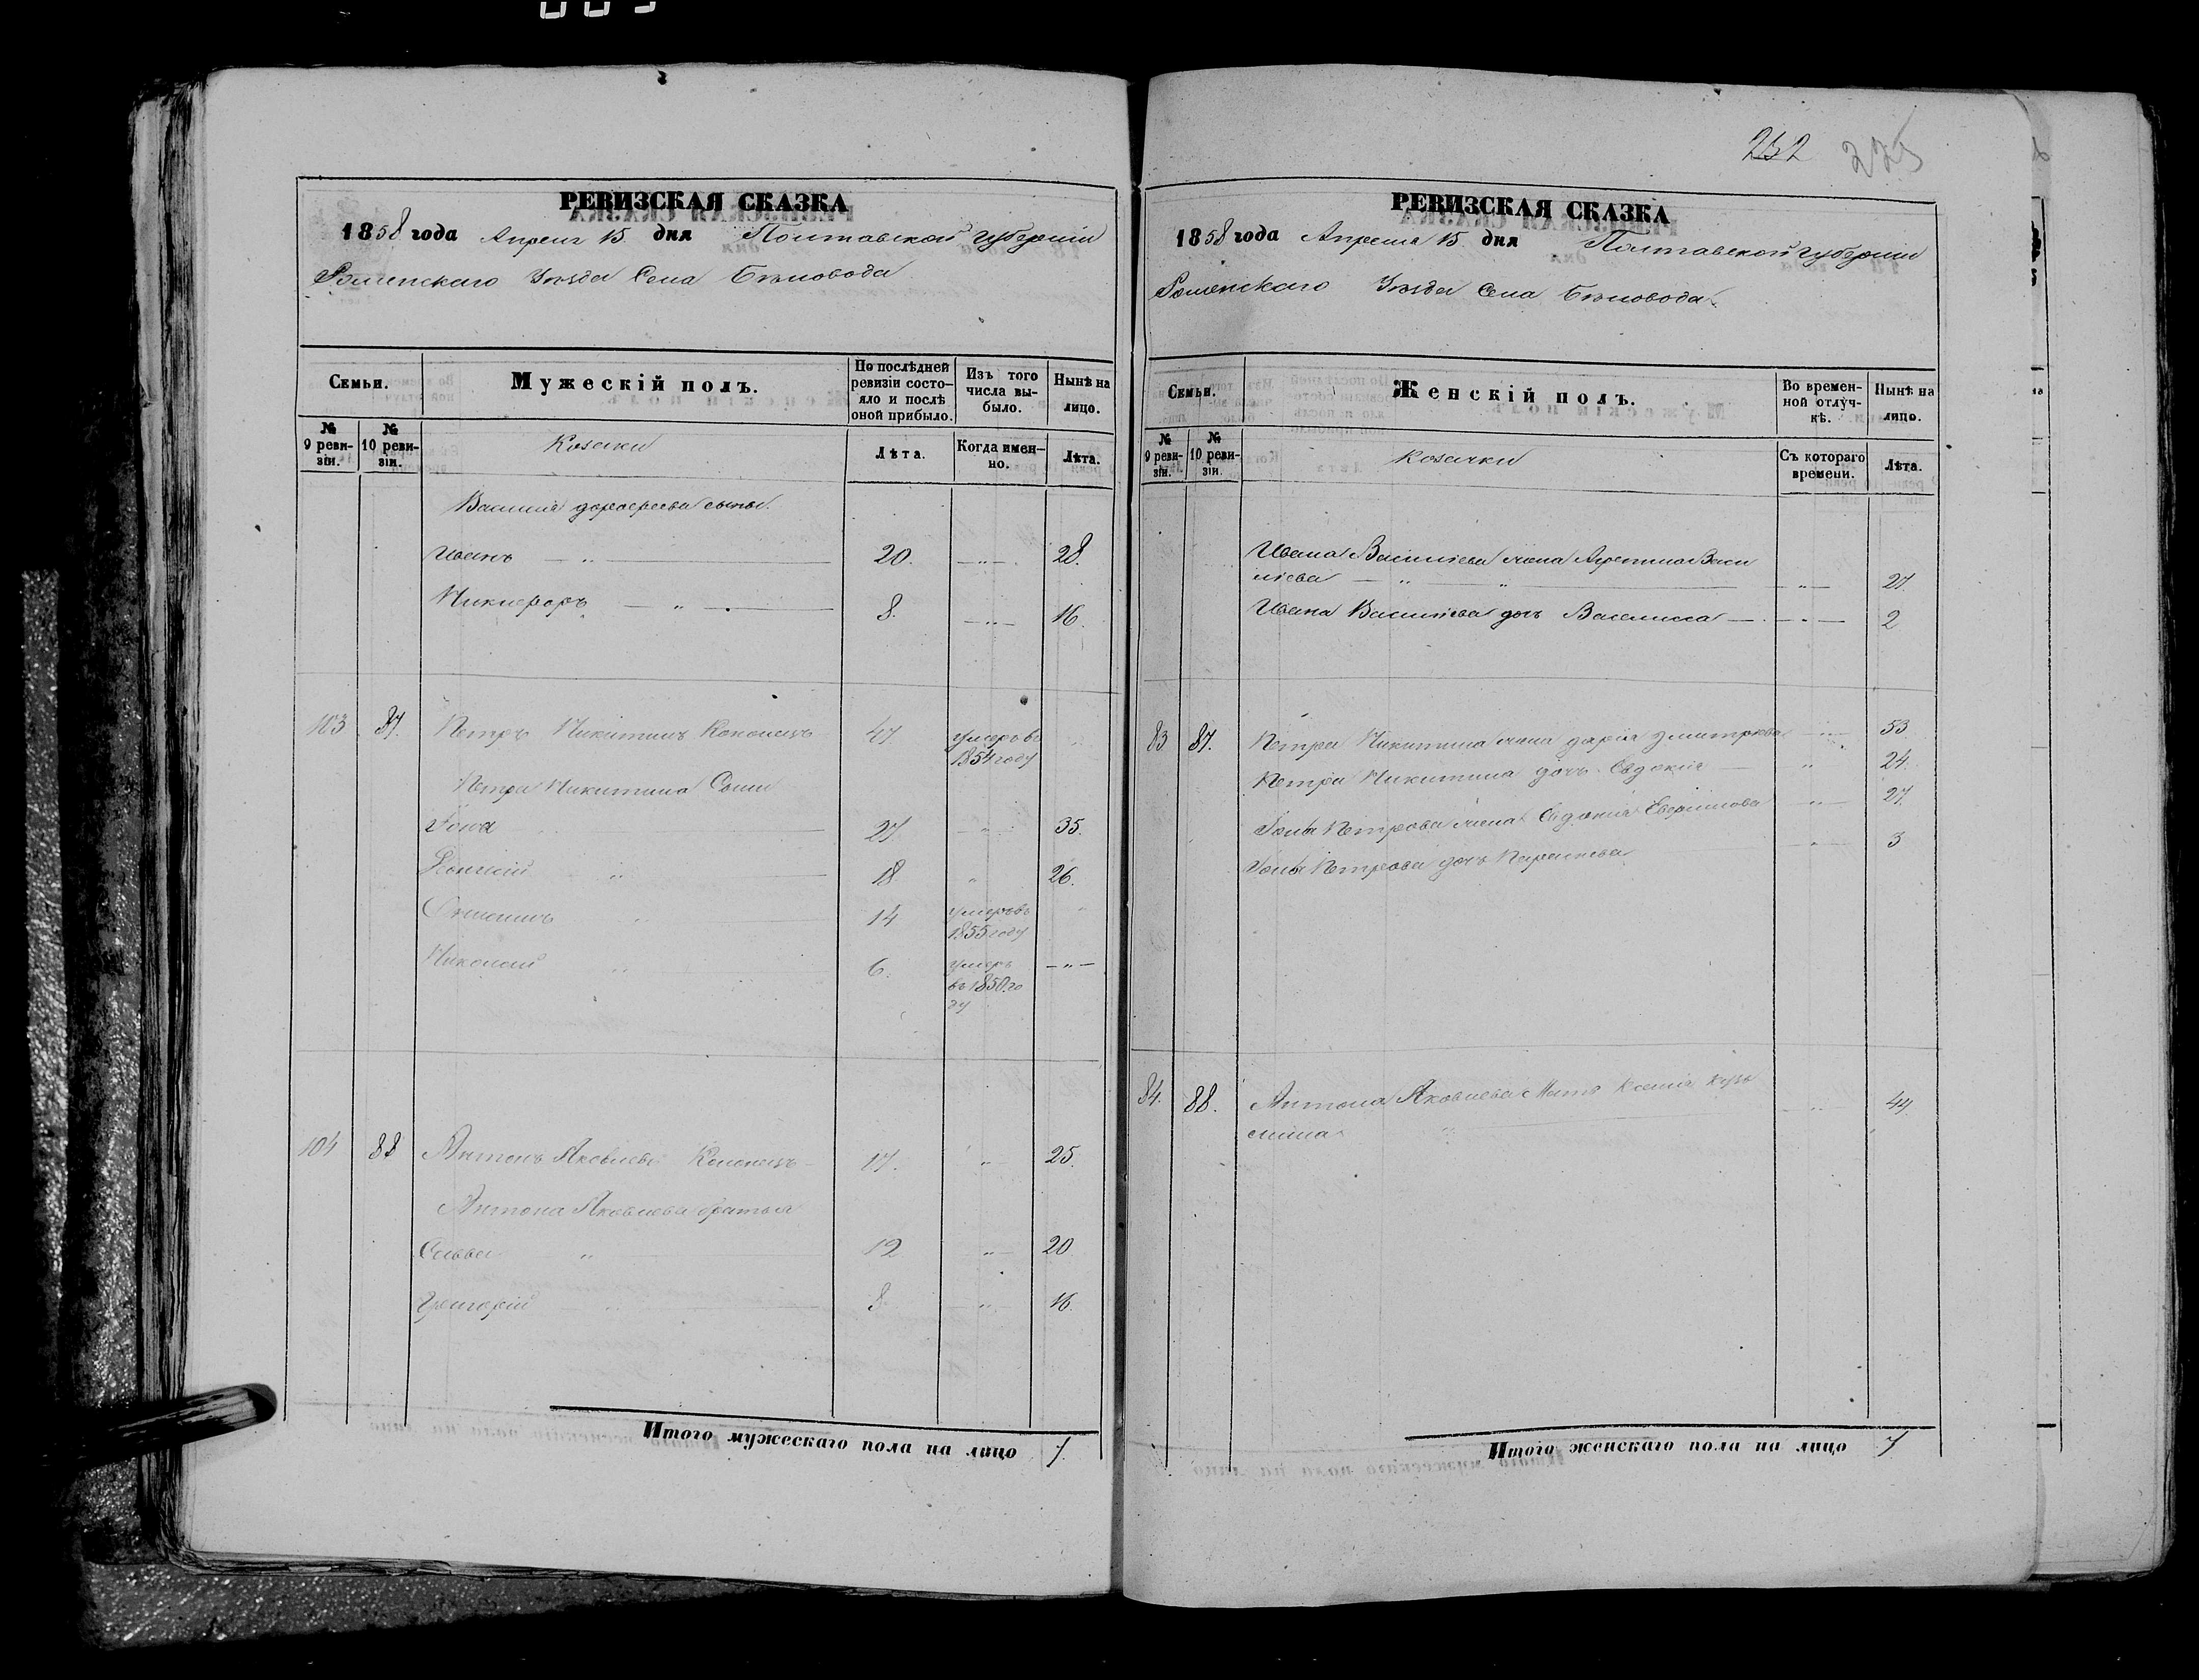 РЕВИЗСКАЯ СКАЗКА
1858 года Апреля 15 дня Полтавской губерніи
Роменскаго Уѣзда Села Бѣловода
Семьи.
Мужескій полъ.
По послѣдней ревизіи состояло и послѣ оной прибыло.
Изъ того числа выбыло.
Нынѣ на лицо.
№ 9 ревизіи.
№ 10 ревизіи.
Козаки
Лѣта.
Когда именно.
Лѣта.
Василія сыны
Иванъ — „ — 20. — „ — 28.
Никифоръ — „ — 8. — „ — 16.
103 87. Петръ Никитинъ Кононецъ 47. умеръ въ
1854 году
Петра Никитина Сыни
Іона 27. „ 35.
18. „ 26.
14 умеръ въ „
1855 году
Николай „ 6. умеръ — „ —
въ 1850 го
ду
104 88 Антонъ Яковлевъ Кононецъ 17. „ 25.
Антона Яковлева братья
Савва „ 12 „ 20
Григорій „ 8 „ 16.
Итого мужескаго пола на лицо 7.
252 225
РЕВИЗСКАЯ СКАЗКА
1858 года Апреля 15 дня Полтавской губерніи
Роменскаго Уѣзда Села Бѣловода
Семьи.
Женскій полъ.
Во временной отлучкѣ.
Нынѣ на лицо.
№ 9 ревизіи.
№ 10 ревизіи.
Козачки
Съ котораго времени.
Лѣта.
Ивана Василіева жена Васи
ліева — „ „ — „ — 27.
Ивана Василіева дочь Василиса — „ — 2
83 87. Петра Никитина жена Дарія Дмитрова — „ — 53
Петра Никитина дочь Евдокія — „ 24.
Іоны Петрова жена Евдокія — „ — 27.
Іоны Петрова дочь Параскева „ 3
84. 88. Антона Яковлева Мать Ксенія Кузь
мина „ „ 44
Итого женскаго пола на лицо 7